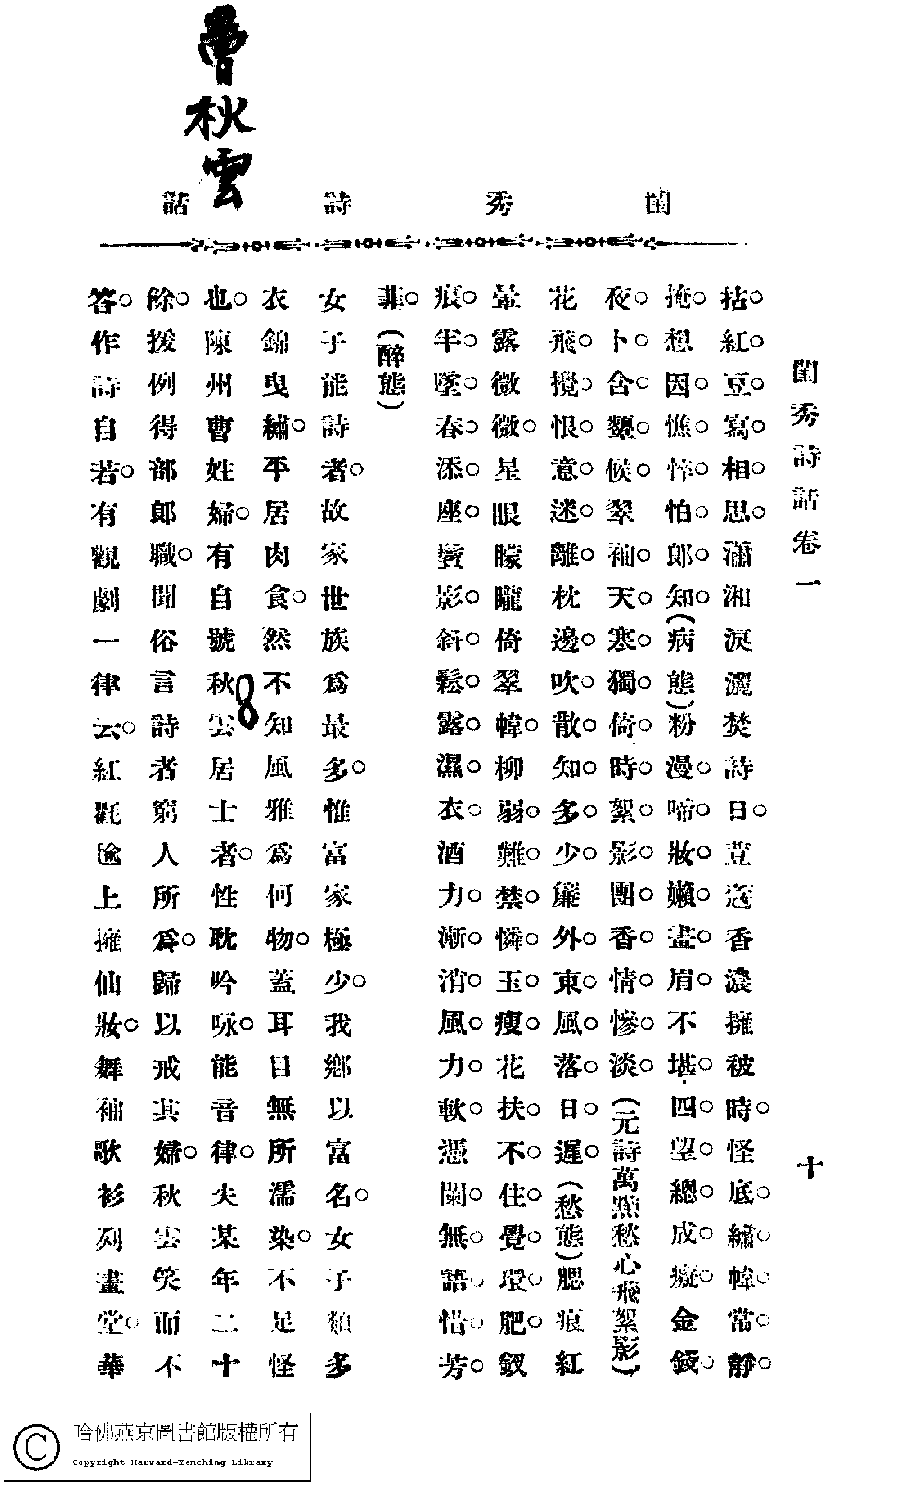 曹秋雲
閨秀詩話
閨秀詩話卷一　十
拈紅豆寫相思瀟湘淚灑焚詩日荳蔻香濃擁被時怪底繡幃常靜
掩想因憔悴怕郎知（病態）粉漫啼妝嬾畫眉不堪四望總成癡金釵
夜卜含顰候翠袖天寒獨倚時絮影團香情慘淡（元詩萬點愁心飛絮影）
花飛攪恨意迷離枕邊吹散知多少簾外東風落日遲（愁態）腮痕紅
暈露微微星眼朦朧倚翠幃柳弱難禁憐玉瘦花扶不住覺環肥釵
痕半墜春添座鬢影斜鬆露濕衣酒力漸消風力軟憑闌無語惜芳
菲（醉態）
女子能詩者故家世族爲最多惟富家極少我鄉以富名女子類多
衣錦曳繡平居肉食然不知風雅爲何物蓋耳目無所濡染不足怪
也陳州曹姓婦有自號秋雲居士者性耽吟咏能音律夫某年二十
餘援例得部郎職聞俗言詩者窮人所爲歸以戒其婦秋雲笑而不
答作詩自若有觀劇一律云紅氍毹上擁仙妝舞袖歌衫列畫堂華
8
哈佛燕京圖書館版權所有
Copyright Harvard-Yenching Library